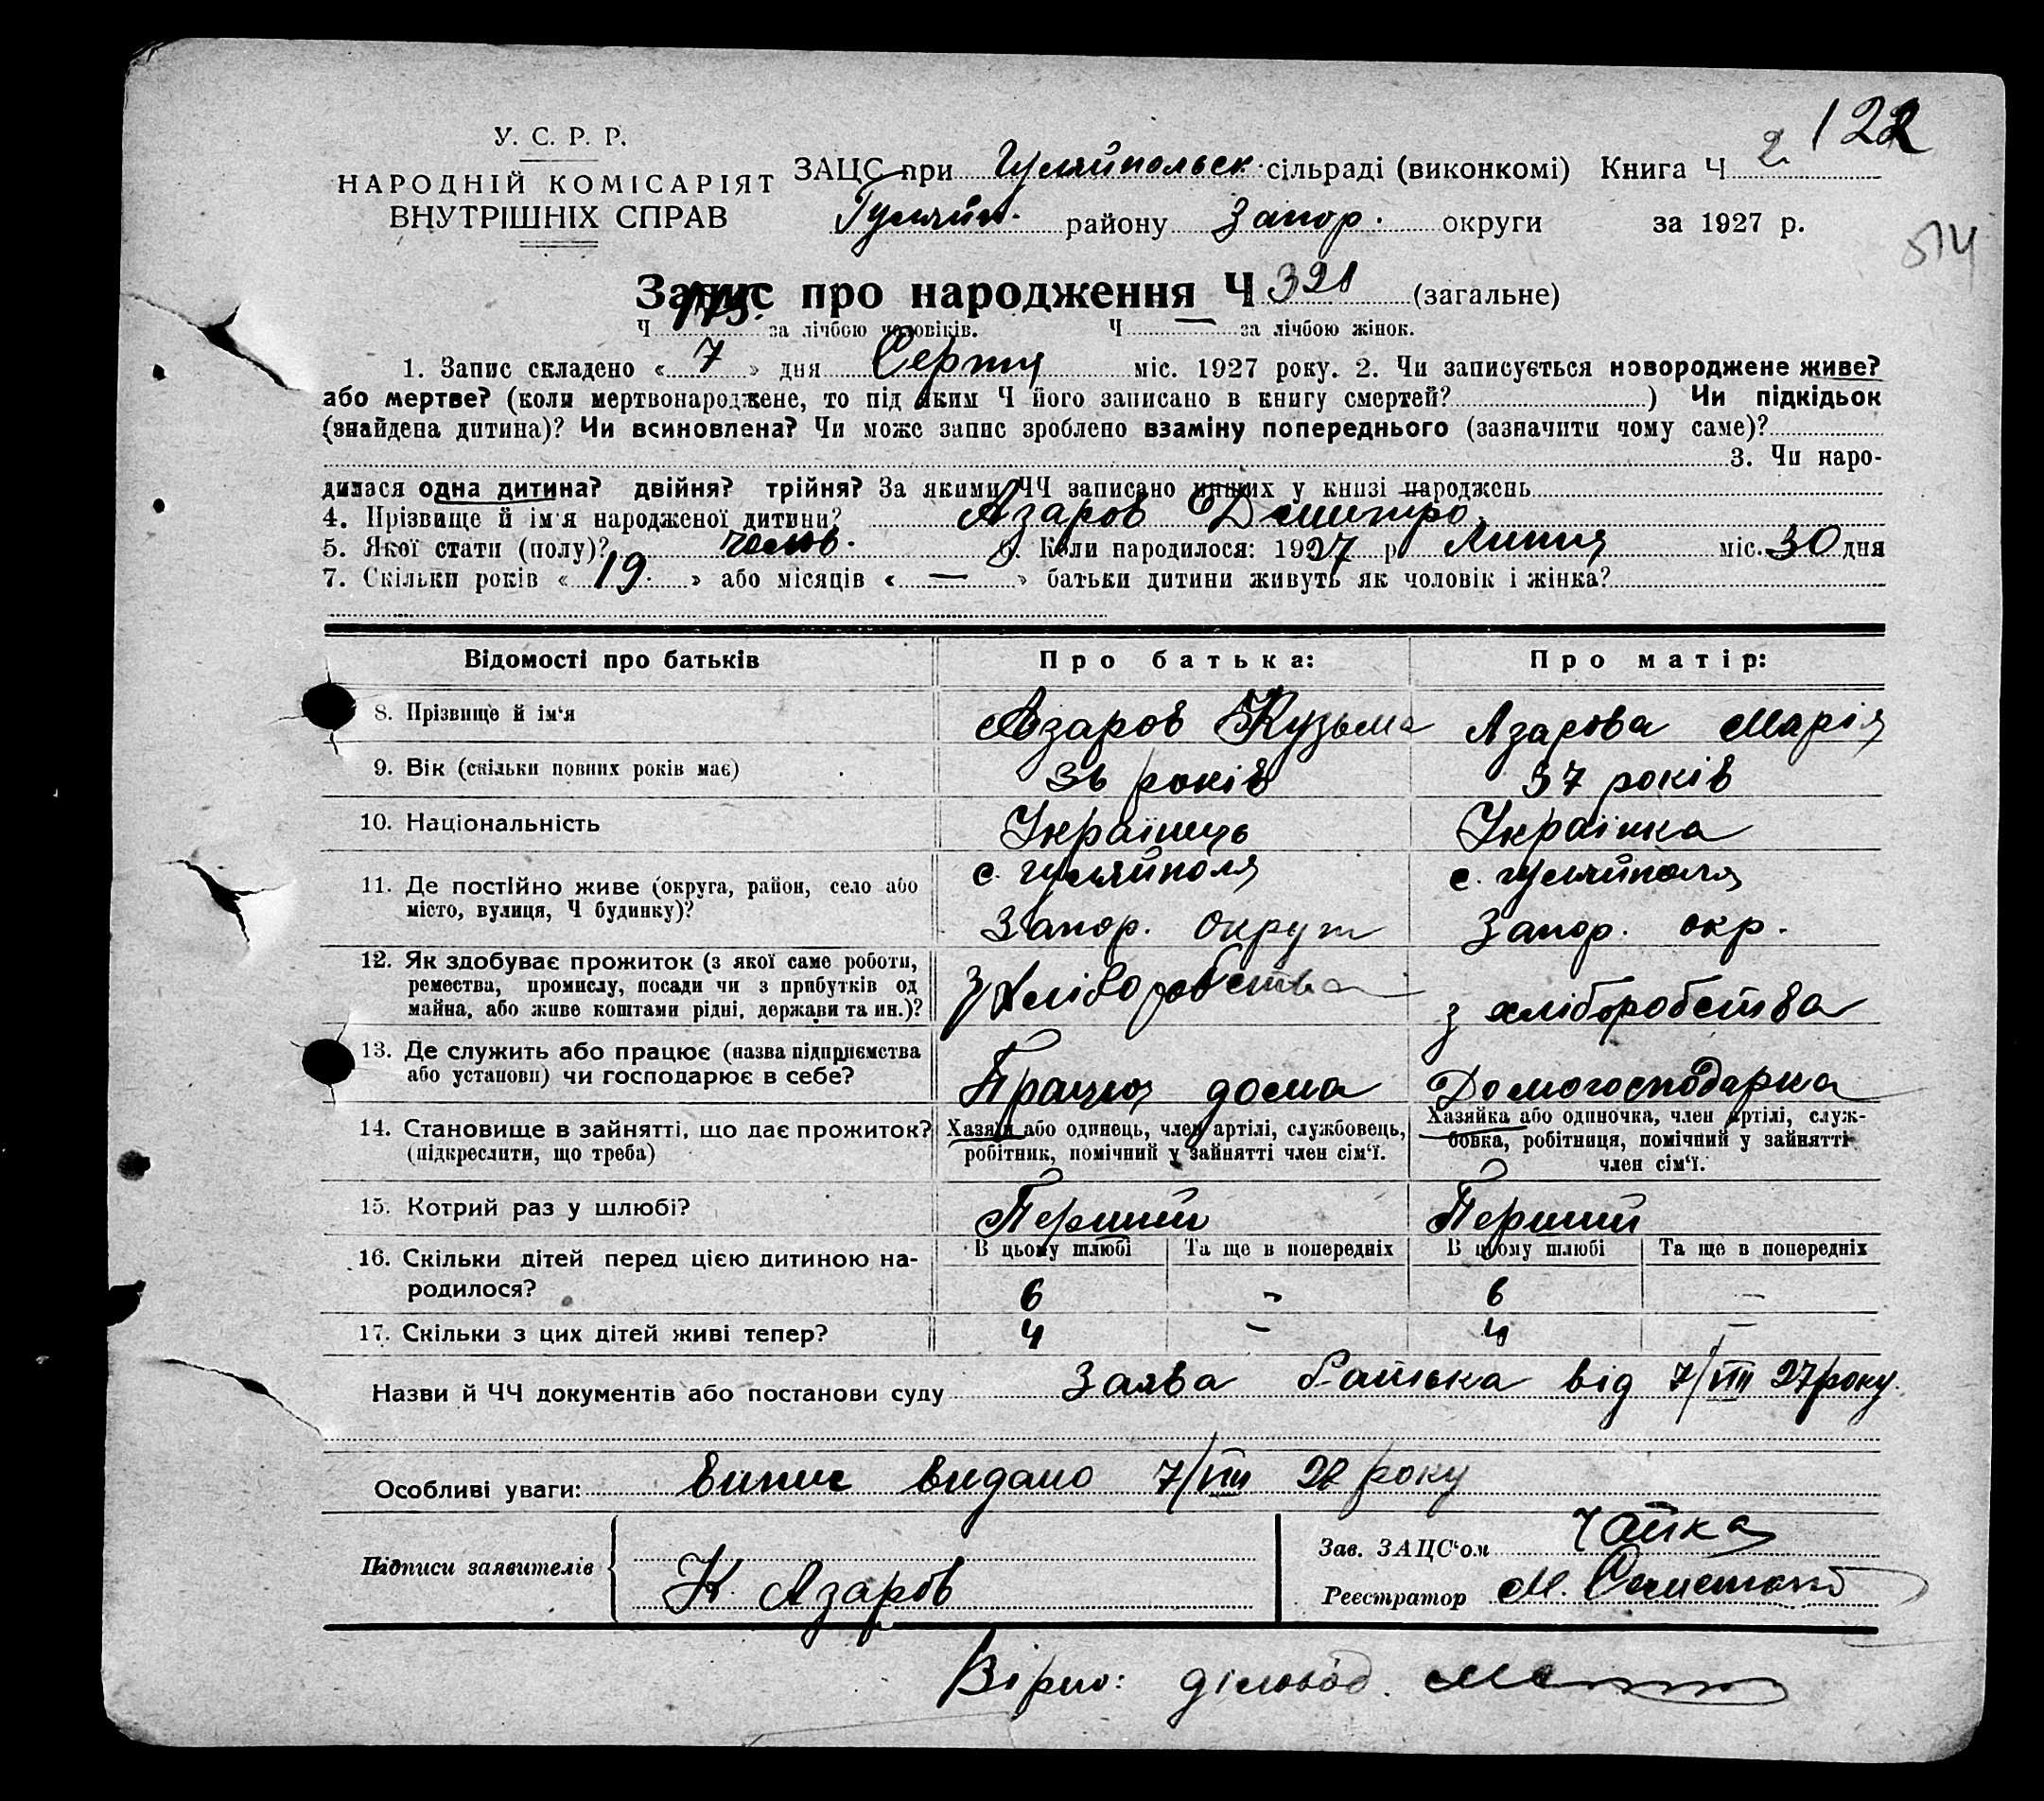 122
У. С. Р. Р.
НАРОДНІЙ КОМІСАРІЯТ
ВНУТРІШНІХ СПРАВ
ЗАЦС при Гуляйпольск. сільраді (виконкомі) Книга Ч 2
Гуляйп. району Запор. округи за 1927 р.
514
Запис про народження Ч 391 (загальне)
Ч 173. за лічбою чоловіків. Ч — за лічбою жінок.
1. Запис складено « 7 » дня Серпня міс. 1927 року. 2. Чи записується новороджене живе?
або мертве? (коли мертвонароджене, то під яким Ч його записано в книгу смертей? ) Чи підкідьок
(знайдена дитина)? Чи всиновлена? Чи може запис зроблено взаміну попереднього (зазначити чому саме)?
3. Чи наро-
дилася одна дитина? двійня? трійня? За якими ЧЧ записано инших у книзі народжень
4. Прізвище й ім'я народженої дитини? Азаров Дмитро.
5. Якої стати (полу)? чолов. 6. Коли народилося: 1927 р. Липня міс. 30 дня
7. Скільки років « 19. » або місяців « — » батьки дитини живуть як чоловік і жінка?
Відомості про батьків Про батька: Про матір:
8. Прізвище й ім'я Азаров Кузьма Азарова Марія
9. Вік (скільки повних років має) 36 років 37 років
10. Національність Українець Українка
11. Де постійно живе (округа, район, село або с. Гуляйполя с. Гуляйполя
місто, вулиця, Ч будинку)? Запор. округи Запор. окр.
12. Як здобуває прожиток (з якої саме роботи,
ремества, промислу, посади чи з прибутків од
майна, або живе коштами рідні, держави та ин.)? З хліборобства з хліборобства
13. Де служить або працює (назва підприємства
або установи) чи господарює в себе? Працює дома Домогосподарка
14. Становище в зайнятті, що дає прожиток? Хазяїн або одинець, член артілі, службовець, Хазяйка або одиночка, член артілі, служ-
(підкреслити, що треба) робітник, помічний у зайнятті член сім'ї. бовка, робітниця, помічний у зайнятті
член сім'ї.
15. Котрий раз у шлюбі? Перший Перший
16. Скільки дітей перед цією дитиною на- В цьому шлюбі Та ще в попередніх В цьому шлюбі Та ще в попередніх
родилося? 6 - 6 —
17. Скільки з цих дітей живі тепер? 4 — 4 —
Назви й ЧЧ документів або постанови суду Заява батька від 7/VIII 27 року.
Особливі уваги: Випис видано 7/VIII 27 року
Підписи заявителів К. Азаров
Зав. ЗАЦС'ом Чайка
Реєстратор М.
Вірно: діловод.